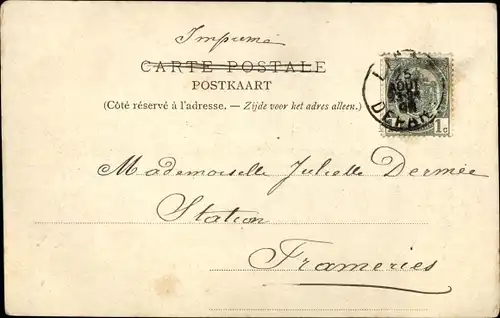 Imprimé
CARTE POSTALE
POSTKAART
(Côté réservé à l'adresse. — Zijde voor het adres alleen.)
15
AOUT
DEPART
1c
Mademoiselle Julielle Dermée
Station
Frameries